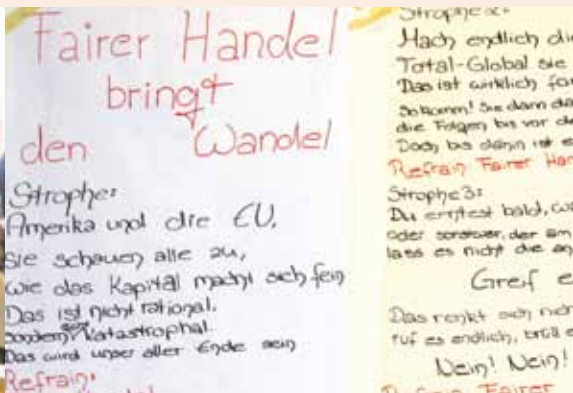 Fairer Handel
bringt
den Wandel
Strophe:
Amerika und die EU,
Sie schauen alle zu,
wie das Kapital macht sich fein
Das ist nicht rational.
sondern katastrophal.
Das wird unser aller Ende sein
Refrain:
Strophe 2:
Mach endlich die
Total-Global sie
Das ist wirklich
die Folgen bis vor
Doch bis dahin ist
Refrain Fairer Han
Strophe 3:
Du erntest bald,
oder der am
lass es nicht die an
Greif e
Das renkt sich nich
ruf es endlich, brüll e
Nein! Nein!
Refrain Fairer